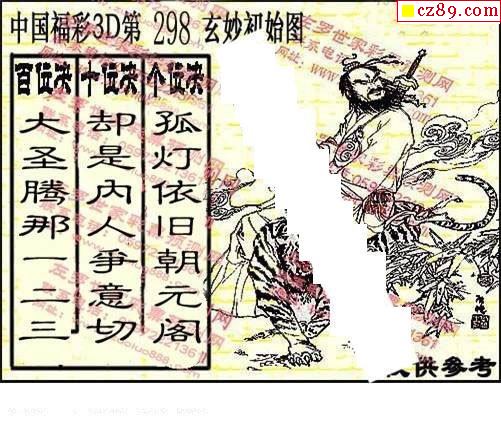 cz89.com
中国福彩3D第 298 玄妙初始图
百位决 十位决 个位决
孤灯依旧朝元阁
却是内人争意切
大圣腾那一二三
供参考